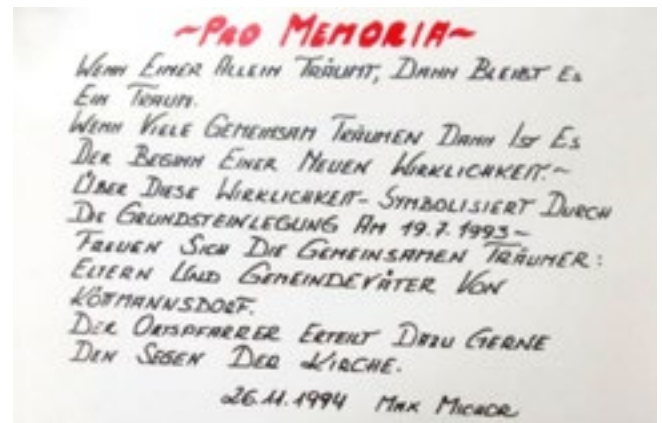 ~PRO MEMORIA~
WENN EINER ALLEIN TRÄUMT, DANN BLEIBT ES
EIN TRAUM.
WENN VIELE GEMEINSAM TRÄUMEN DANN IST ES
DER BEGINN EINER NEUEN WIRKLICHKEIT.~
ÜBER DIESE WIRKLICHKEIT- SYMBOLISIERT DURCH
DIE GRUNDSTEINLEGUNG AM 19.7.1993~
FREUEN SICH DIE GEMEINSAMEN TRÄUMER:
ELTERN UND GEMEINDEVÄTER VON
KÖTTMANNSDORF.
DER ORTSPFARRER ERTEILT DAZU GERNE
DEN SEGEN DER KIRCHE.
26.11.1994 MAX MICHOR